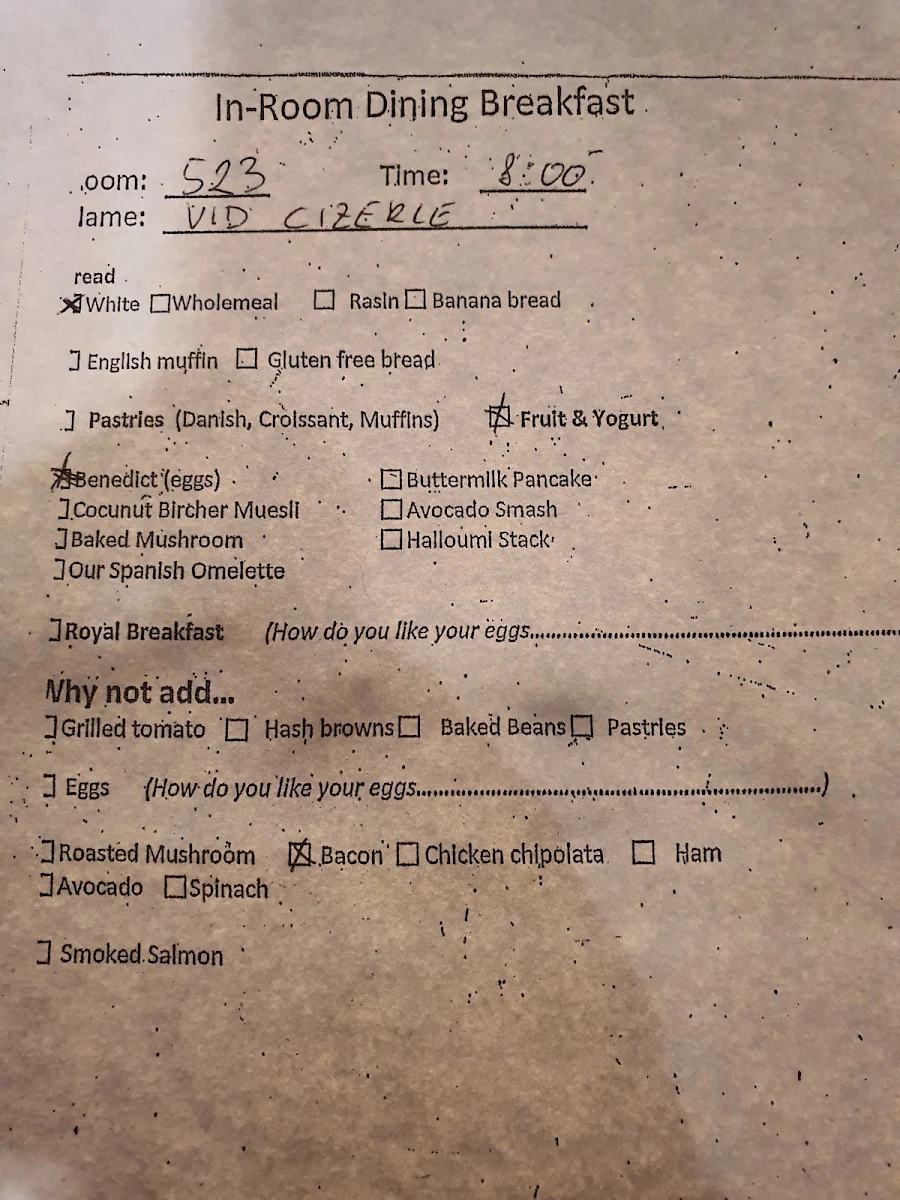 In-Room Dining Breakfast
oom: 523 Time: 8:00
lame: VID CIZERLE
read
☒White ☐Wholemeal ☐ Rasin ☐ Banana bread
☐ English muffin ☐ Gluten free bread
☐ Pastries (Danish, Croissant, Muffins) ☒ Fruit & Yogurt
☒Benedict (eggs) ☐Buttermilk Pancake
☐Cocunut Bircher Muesli ☐Avocado Smash
☐Baked Mushroom ☐Halloumi Stack
☐Our Spanish Omelette
☐Royal Breakfast (How do you like your eggs..............................
Why not add...
☐Grilled tomato ☐ Hash browns☐ Baked Beans☐ Pastries
☐ Eggs (How do you like your eggs..............................)
☐Roasted Mushroom ☒Bacon ☐Chicken chipolata ☐ Ham
☐Avocado ☐Spinach
☐ Smoked Salmon